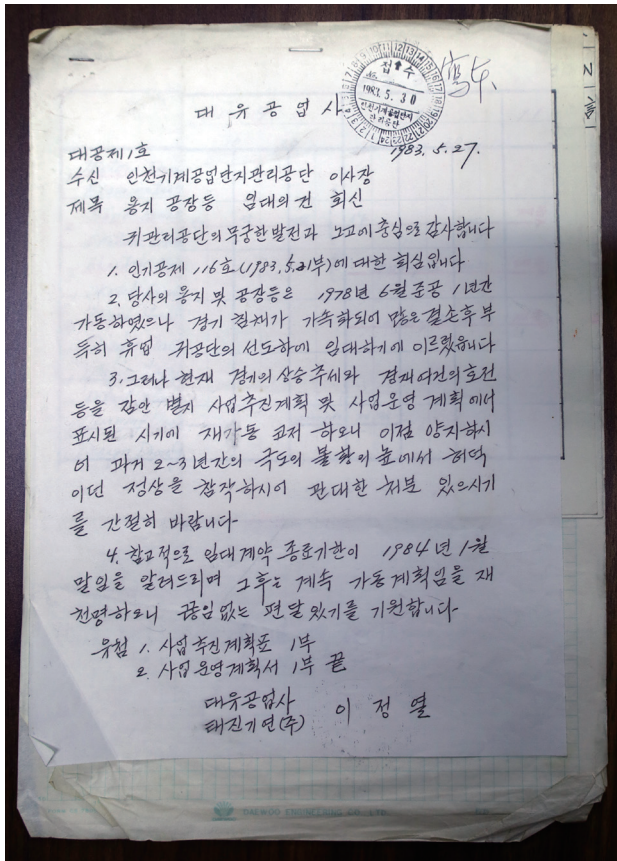 접수
1983. 5. 30
인천기계공업단지
관리공단
대유공업사
대공제1호
1983. 5. 27.
수신 인천기계공업단지관리공단 이사장
제목 용지 공장등 임대의 건 회신
귀관리공단의 무궁한 발전과 노고에 충심으로 감사합니다
1. 인기공제 116호(1983. 5. 21부)에 대한 회심입니다
2. 당사의 용지 및 공장등은 1978년 6월 준공 1년간
가동하였으나 경기 침체가 가속화되어 많은 결손후 부
득히 휴업 귀공단의 선도하에 임대하기에 이르렀읍니다
3. 그러나 현재 경기의 상승추세와 경제여건의 호전
등을 감안 별지 사업추진계획 및 사업운영 계획에서
표시된 시기에 재가동 코저 하오니 이점 양지하시
어 과거 2~3년간의 극도의 불황의 늪에서 허덕
이던 정상을 참작하시어 관대한 처분 있으시기
를 간절히 바랍니다
4. 참고적으로 임대계약 종료기한이 1984년 1월
말임을 알려드리며 그후는 계속 가동계획임을 재
천명하오니 끊임없는 편달 있기를 기원합니다
유첨 1. 사업추진계획표 1부
2. 사업운영계획서 1부 끝
대유공업사
태진기연(주) 이정열
DAEWOO ENGINEERING CO. LTD.